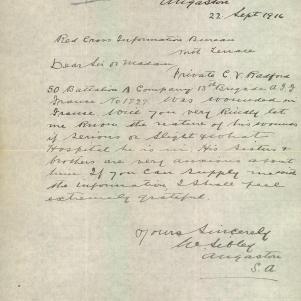 Angaston
22 Sept 1916
Red Cross Information Bureau
North Terrace
Dear Sir or Madam
Private C V Radford
50 Battalion A Company 13th Brigade A.I.F
France No 1729. Was wounded in
France. Will you very kindly let
me know the nature of his wounds
if serious or slight & what
Hospital he is in. His sisters &
brothers are very anxious about
him. If you can supply me with
the information, I shall feel
extremely grateful.
Yours Sincerely
W Sibley
Angaston
S.A